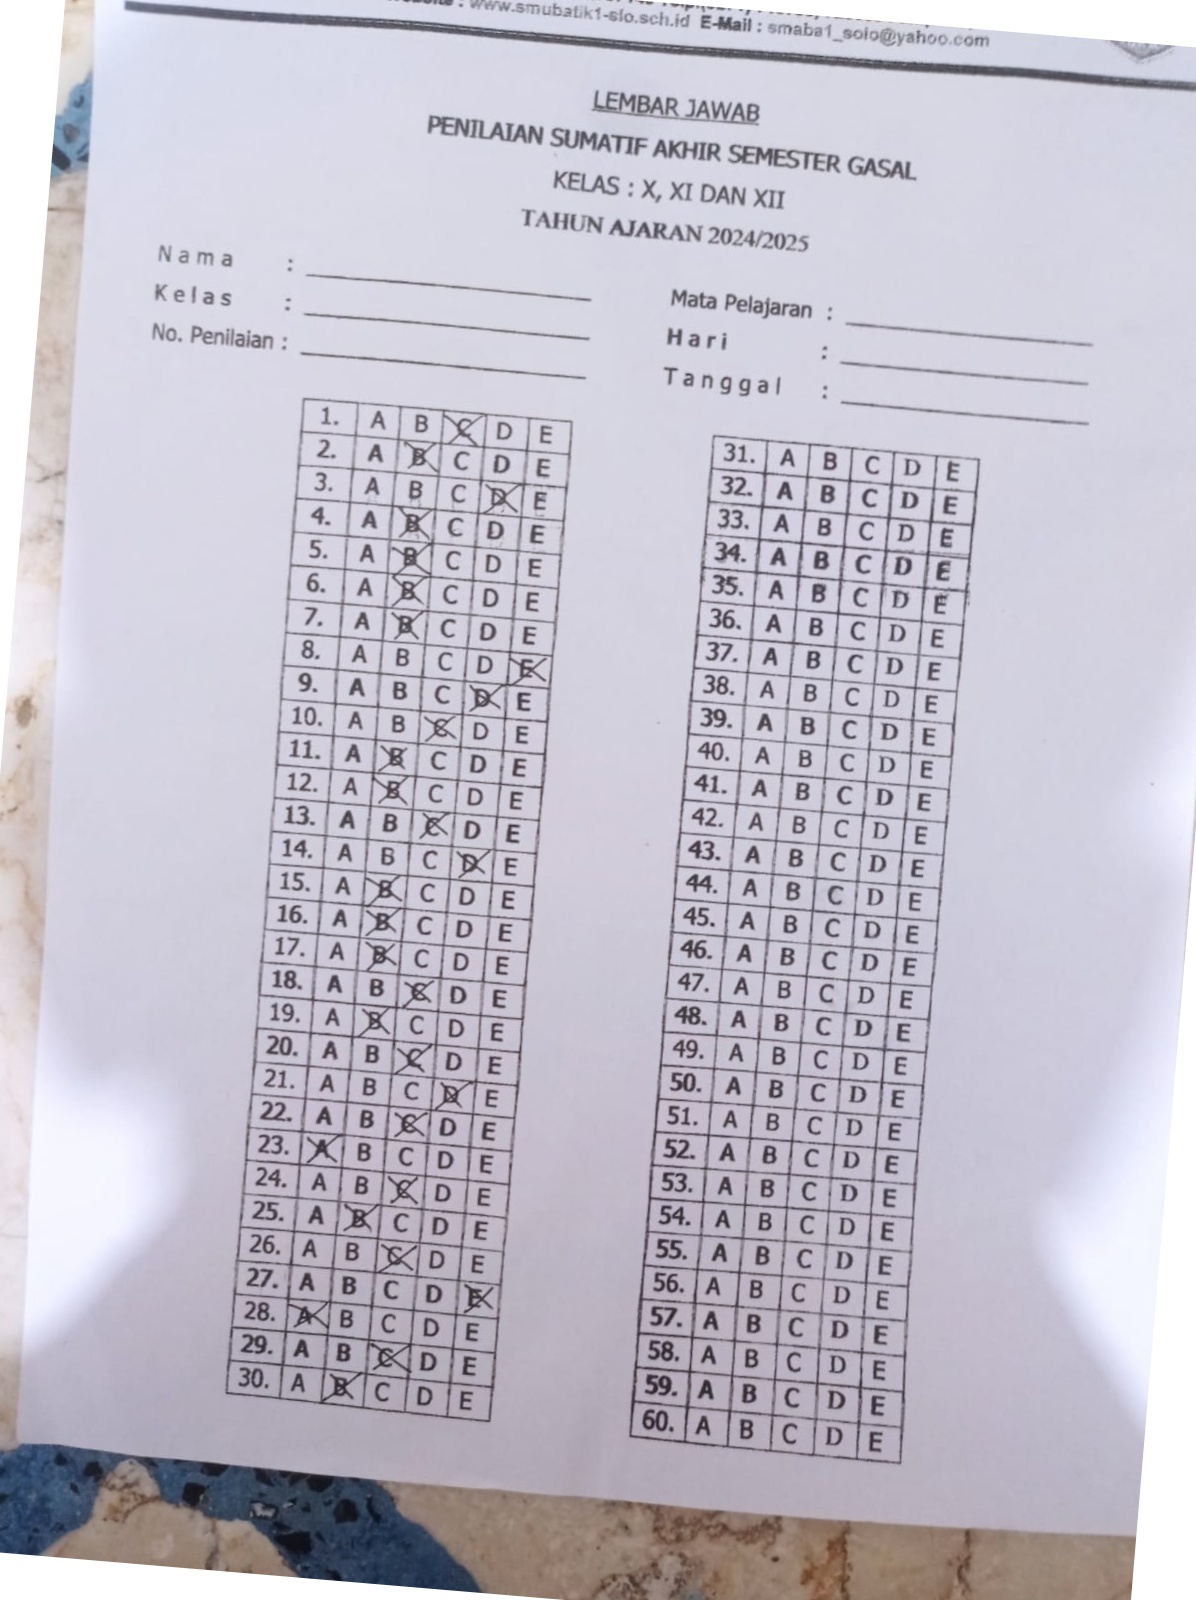 Website : www.smubatik1-slo.sch.id E-Mail : smaba1_solo@yahoo.com
LEMBAR JAWAB
PENILAIAN SUMATIF AKHIR SEMESTER GASAL
KELAS : X, XI DAN XII
TAHUN AJARAN 2024/2025
Nama :
Kelas :
No. Penilaian :
Mata Pelajaran :
Hari :
Tanggal :
1. A B C D E
2. A B C D E
3. A B C D E
4. A B C D E
5. A B C D E
6. A B C D E
7. A B C D E
8. A B C D E
9. A B C D E
10. A B C D E
11. A B C D E
12. A B C D E
13. A B C D E
14. A B C D E
15. A B C D E
16. A B C D E
17. A B C D E
18. A B C D E
19. A B C D E
20. A B C D E
21. A B C D E
22. A B C D E
23. A B C D E
24. A B C D E
25. A B C D E
26. A B C D E
27. A B C D E
28. A B C D E
29. A B C D E
30. A B C D E
31. A B C D E
32. A B C D E
33. A B C D E
34. A B C D E
35. A B C D E
36. A B C D E
37. A B C D E
38. A B C D E
39. A B C D E
40. A B C D E
41. A B C D E
42. A B C D E
43. A B C D E
44. A B C D E
45. A B C D E
46. A B C D E
47. A B C D E
48. A B C D E
49. A B C D E
50. A B C D E
51. A B C D E
52. A B C D E
53. A B C D E
54. A B C D E
55. A B C D E
56. A B C D E
57. A B C D E
58. A B C D E
59. A B C D E
60. A B C D E